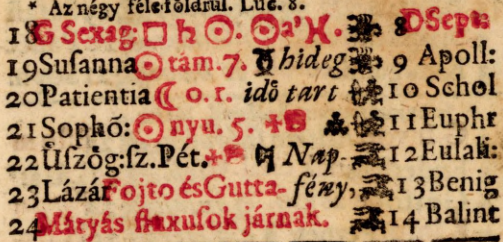 * Az négy féle földrül. Luc. 8.
18 G Sexag: □ ♄ ☉. ☉ a' ♓. 8 D Septu
19 Susanna ☉ tám. 7. hideg 9 Apoll:
20 Patientia ☾ o. r. idő tart 10 Schol
21 Sophő: ☉ nyu. 5. 11 Euphr
22 Üszög: sz. Pét. Nap- 12 Eulali:
23 Lázár Fojto és Gutta- fény, 13 Benig
24 Mátyás fluxusok járnak. 14 Balint